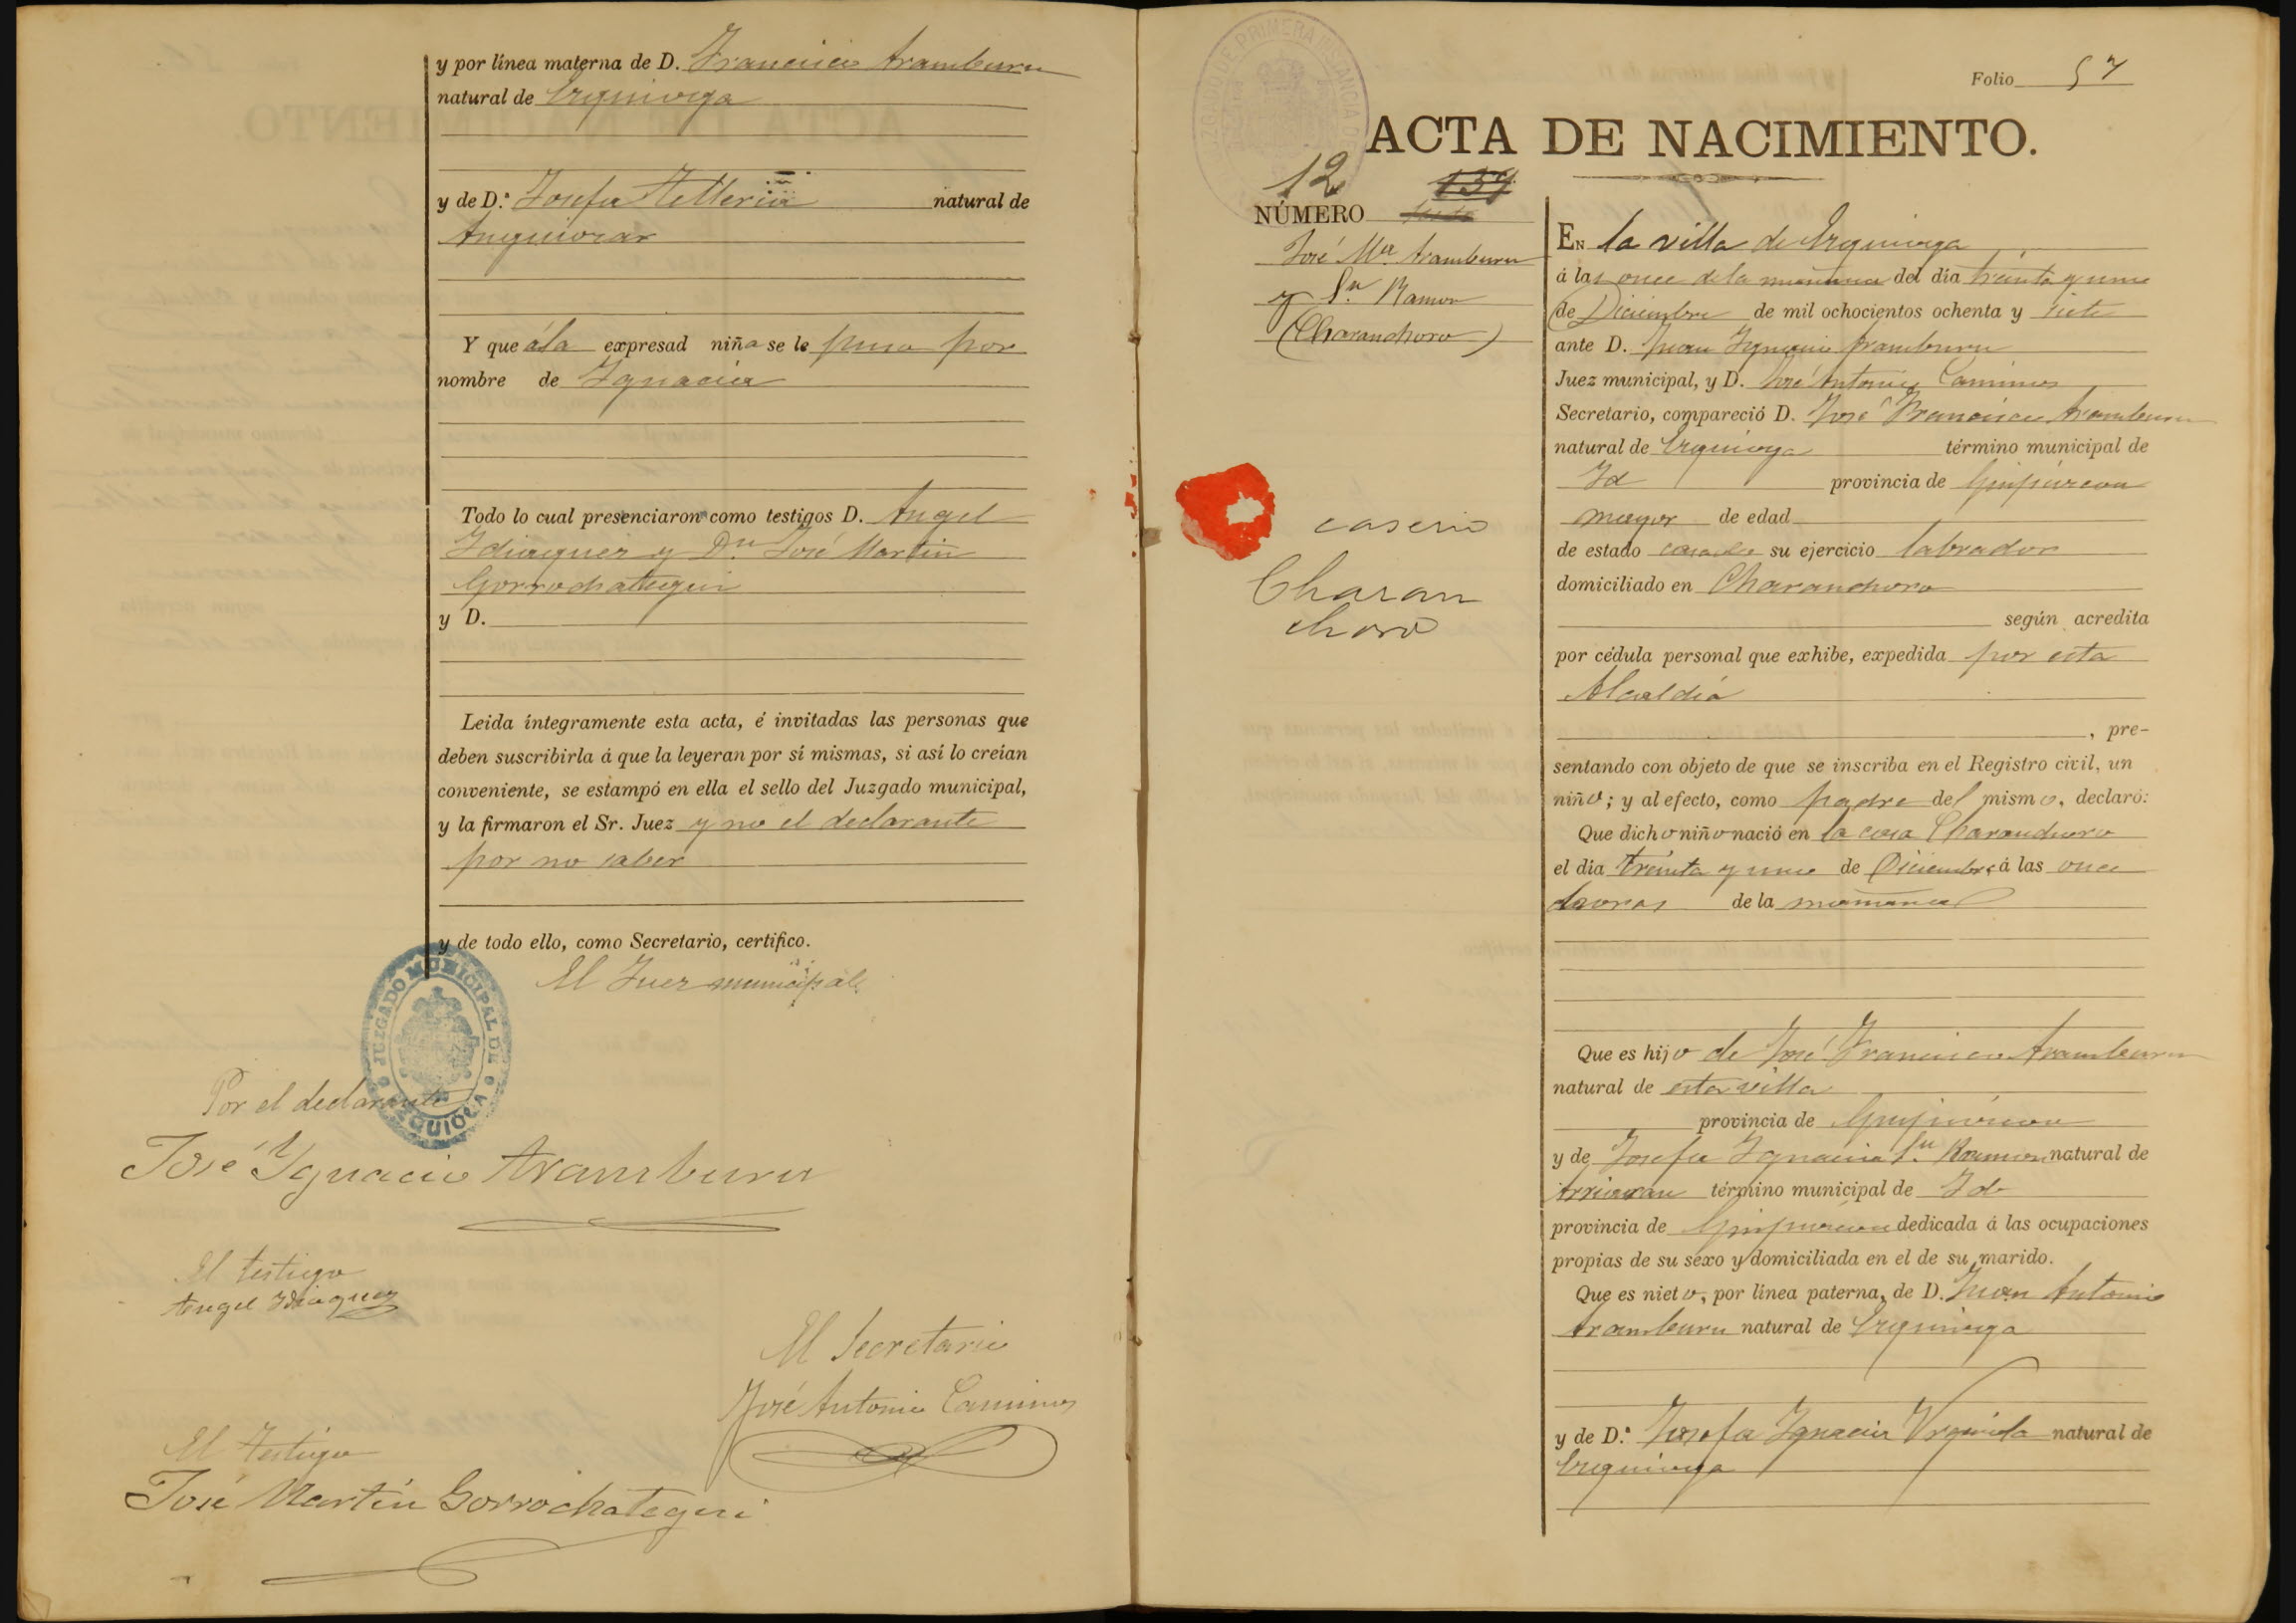 y por línea materna de D. Francisco Aramburu
natural de Ezquioga
y de D.ª Josefa Telleria natural de
Anguiozar
Y que á la expresad niña se le puso por
nombre de Ignacia
Todo lo cual presenciaron como testigos D. Angel
Idiaquez y Dn José Martin
Gorrochategui
y D.
Leida íntegramente esta acta, é invitadas las personas que
deben suscribirla á que la leyeran por sí mismas, si así lo creían
conveniente, se estampó en ella el sello del Juzgado municipal,
y la firmaron el Sr. Juez y no el declarante
por no saber
y de todo ello, como Secretario, certifico.
El Juez municipal
JUZGADO MUNICIPAL DE EZQUIOGA
Por el declarante
José Ignacio Aramburu
El testigo
Angel Idiaquez
El Secretario
José Antonio Caminos
El testigo
José Martín Gorrochategui
JUZGADO DE PRIMERA INSTANCIA DE
Folio 57
ACTA DE NACIMIENTO.
12 137
NÚMERO
José Ma Aramburu
y Sn Ramon
(Charanchoro)
caserio
Charan
choro
EN la villa de Ezquioga
á las once de la mañana del día treinta y uno
de Diciembre de mil ochocientos ochenta y siete
ante D. Juan Ignacio Aramburu
Juez municipal, y D. José Antonio Caminos
Secretario, compareció D. José Francisco Aramburu
natural de Ezquioga término municipal de
Id provincia de Guipúzcoa
mayor de edad
de estado casado su ejercicio labrador
domiciliado en Charanchoro
según acredita
por cédula personal que exhibe, expedida por esta
Alcaldía
, pre-
sentando con objeto de que se inscriba en el Registro civil, un
niño; y al efecto, como padre del mismo, declaró:
Que dicho niño nació en la casa Charanchoro
el dia treinta y uno de Diciembre á las once
horas de la mañana
Que es hijo de José Francisco Aramburu
natural de esta villa
provincia de Guipúzcoa
y de Josefa Ignacia Sn Ramon natural de
Arriaran término municipal de Id
provincia de Guipúzcoa dedicada á las ocupaciones
propias de su sexo y domiciliada en el de su marido.
Que es nieto, por línea paterna, de D. Juan Antonio
Aramburu natural de Ezquioga
y de D.ª Josefa Ignacia Urquiola natural de
Ezquioga